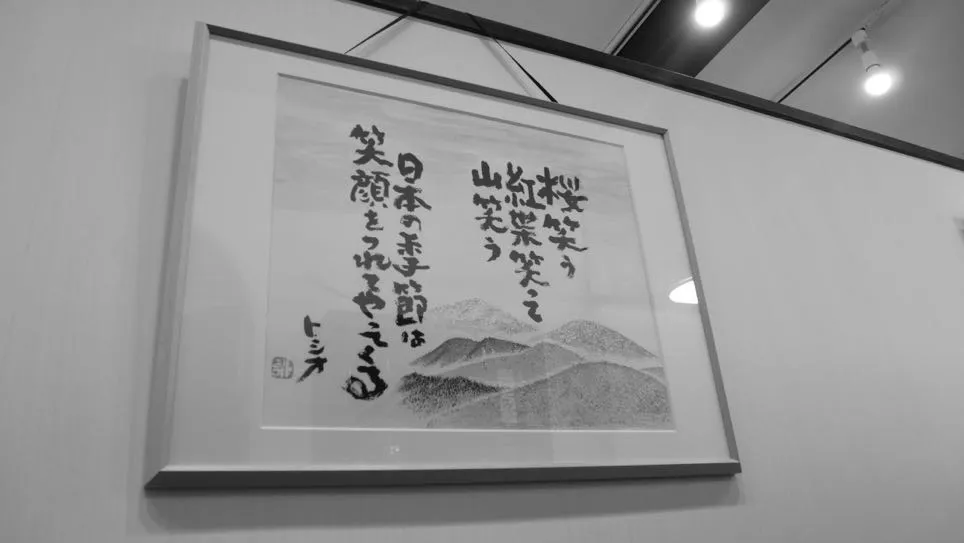 桜笑う
紅葉笑って
山笑う
日本の季節は
笑顔をつれてやってくる
トシオ